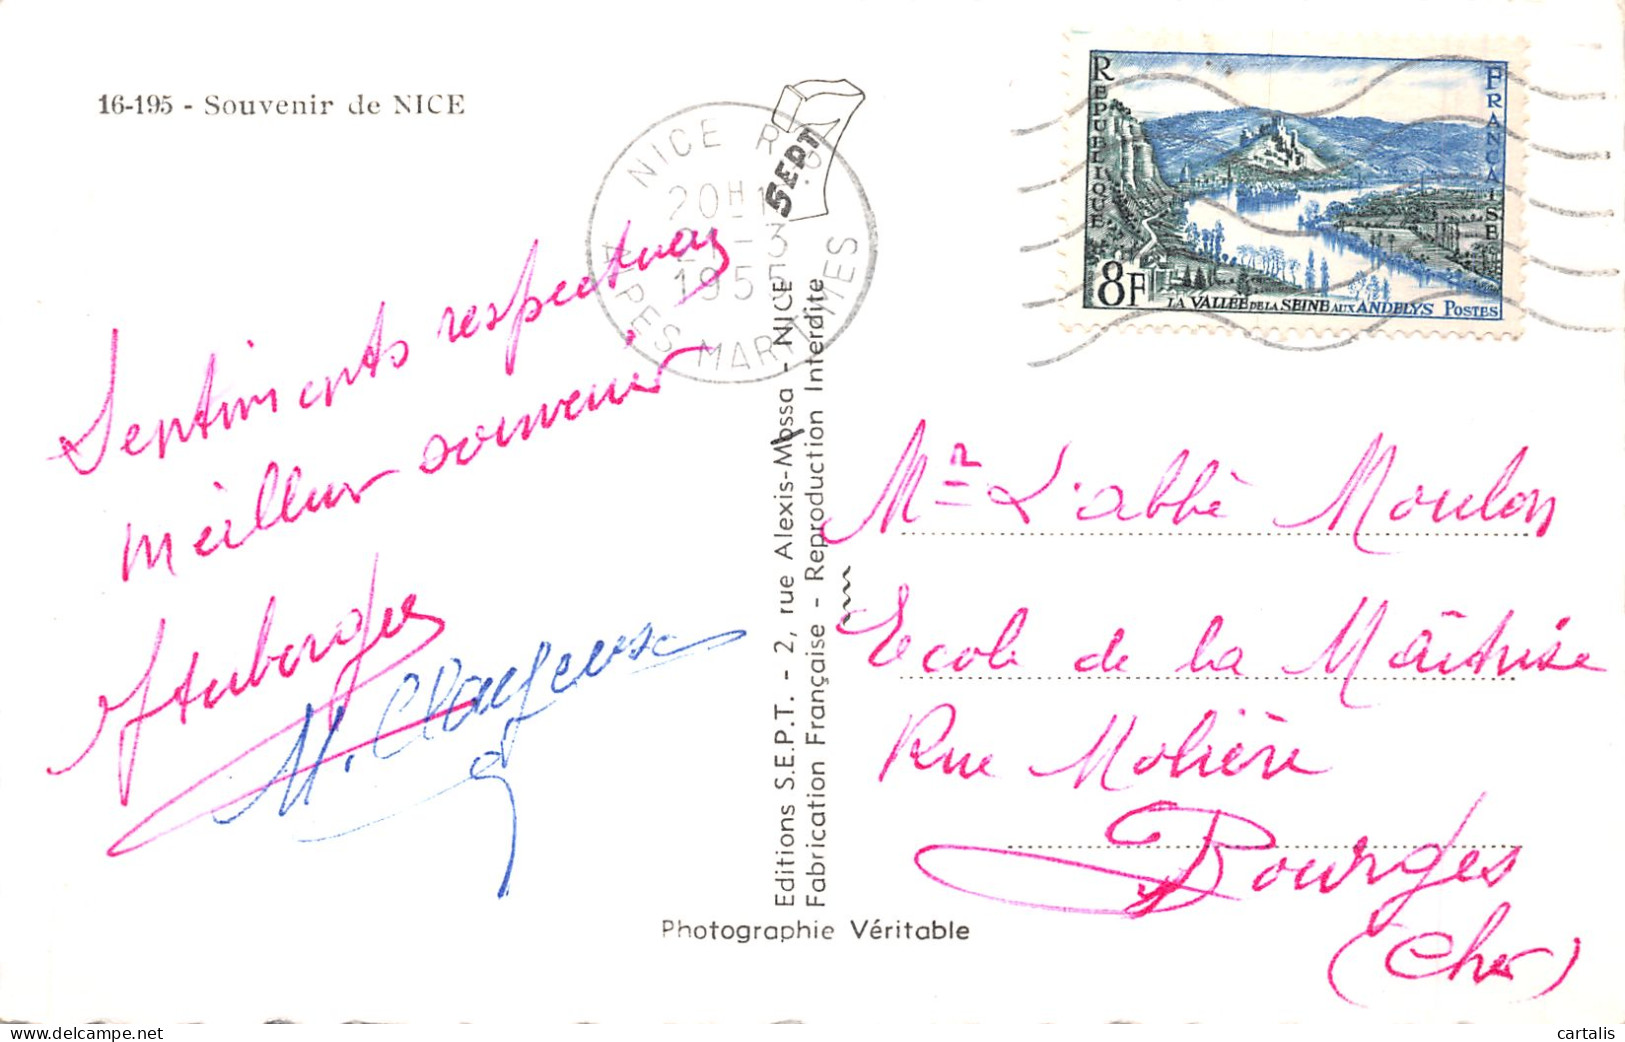 16-195 - Souvenir de NICE
Sentiments respectueux
Meilleur souvenir
NICE R.P.
20H
21-3
1955
ALPES MARITIMES
SEPT
REPUBLIQUE FRANCAISE
8F
LA VALLÉE DE LA SEINE AUX ANDELYS POSTES
Editions S.E.P.T. - 2, rue Alexis-Mossa - NICE
Fabrication Française - Reproduction Interdite
Mr L'abbé Moulon
Ecole de la Maîtrise
Rue Molière
Bourges
(Cher)
Photographie Véritable
www.delcampe.net
cartalis